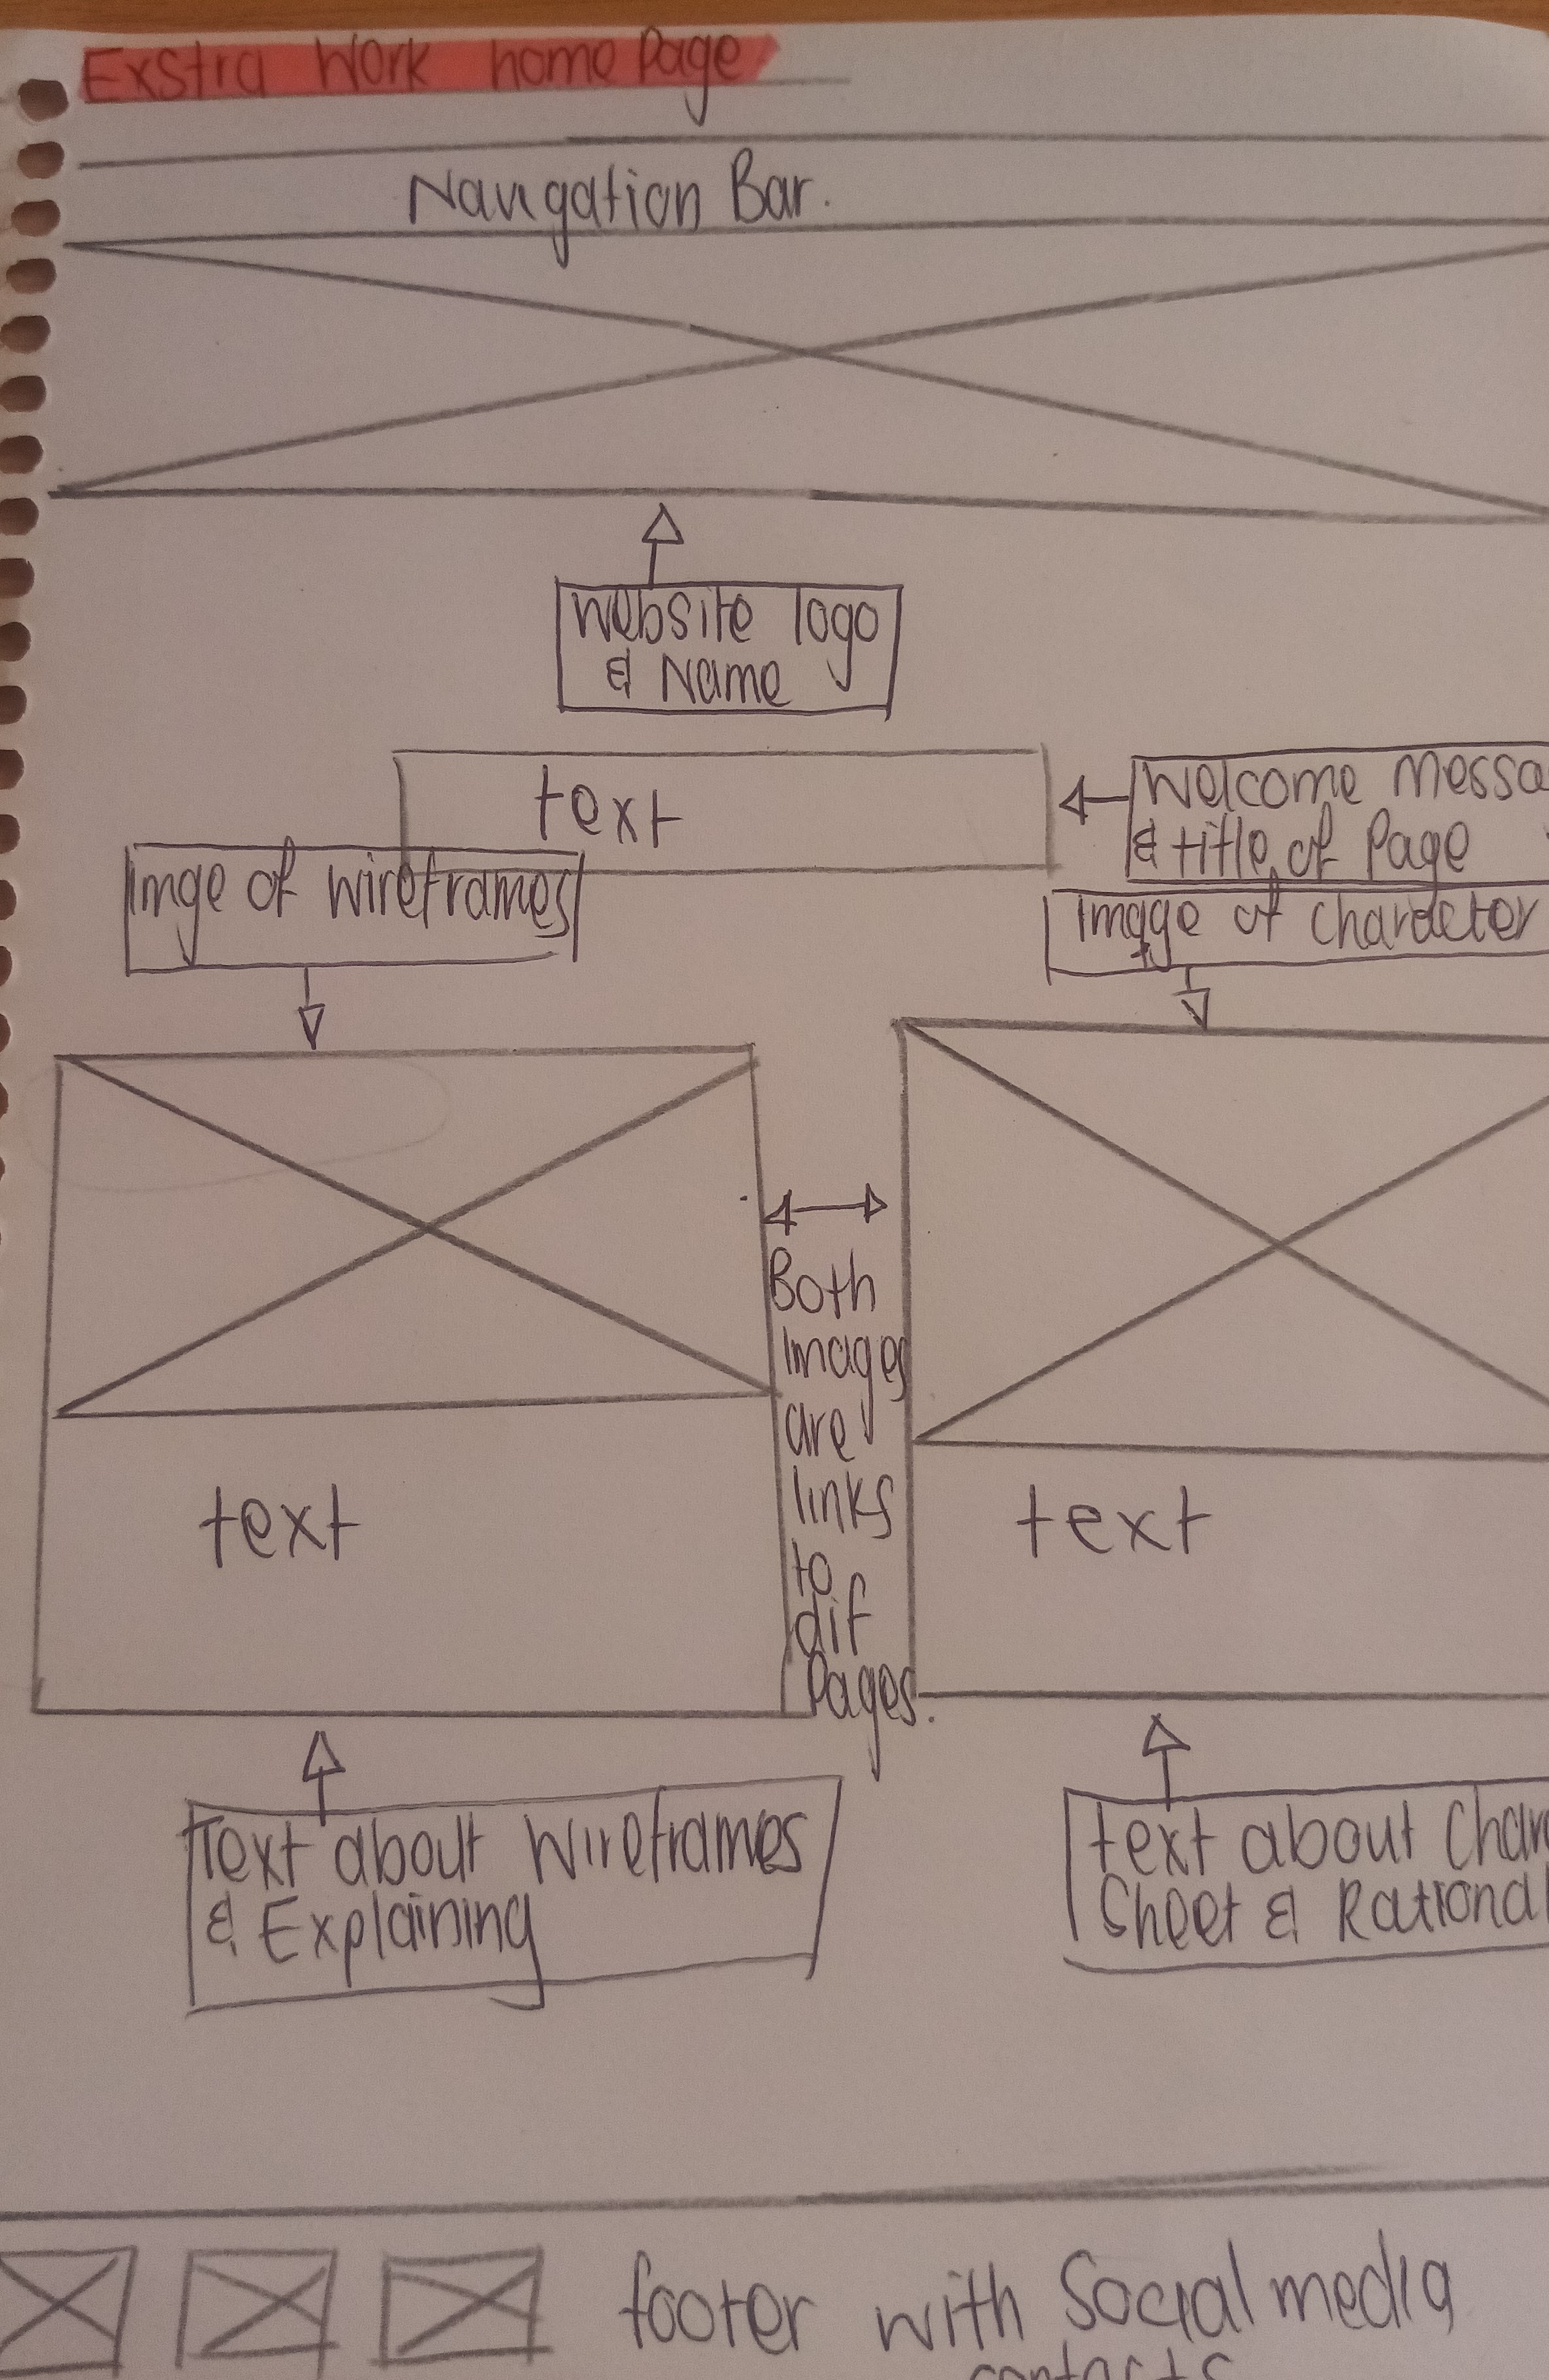 Exstra Work home Page
Navigation Bar.
Website logo
& Name
text
Welcome Messa
& title of Page
Imge of wireframes
Image of character
Both
Images
are
links
to
dif
Pages.
text
text
Text about Wireframes
& Explaining
text about Char
Sheet & Rational
footer with Social media
contacts